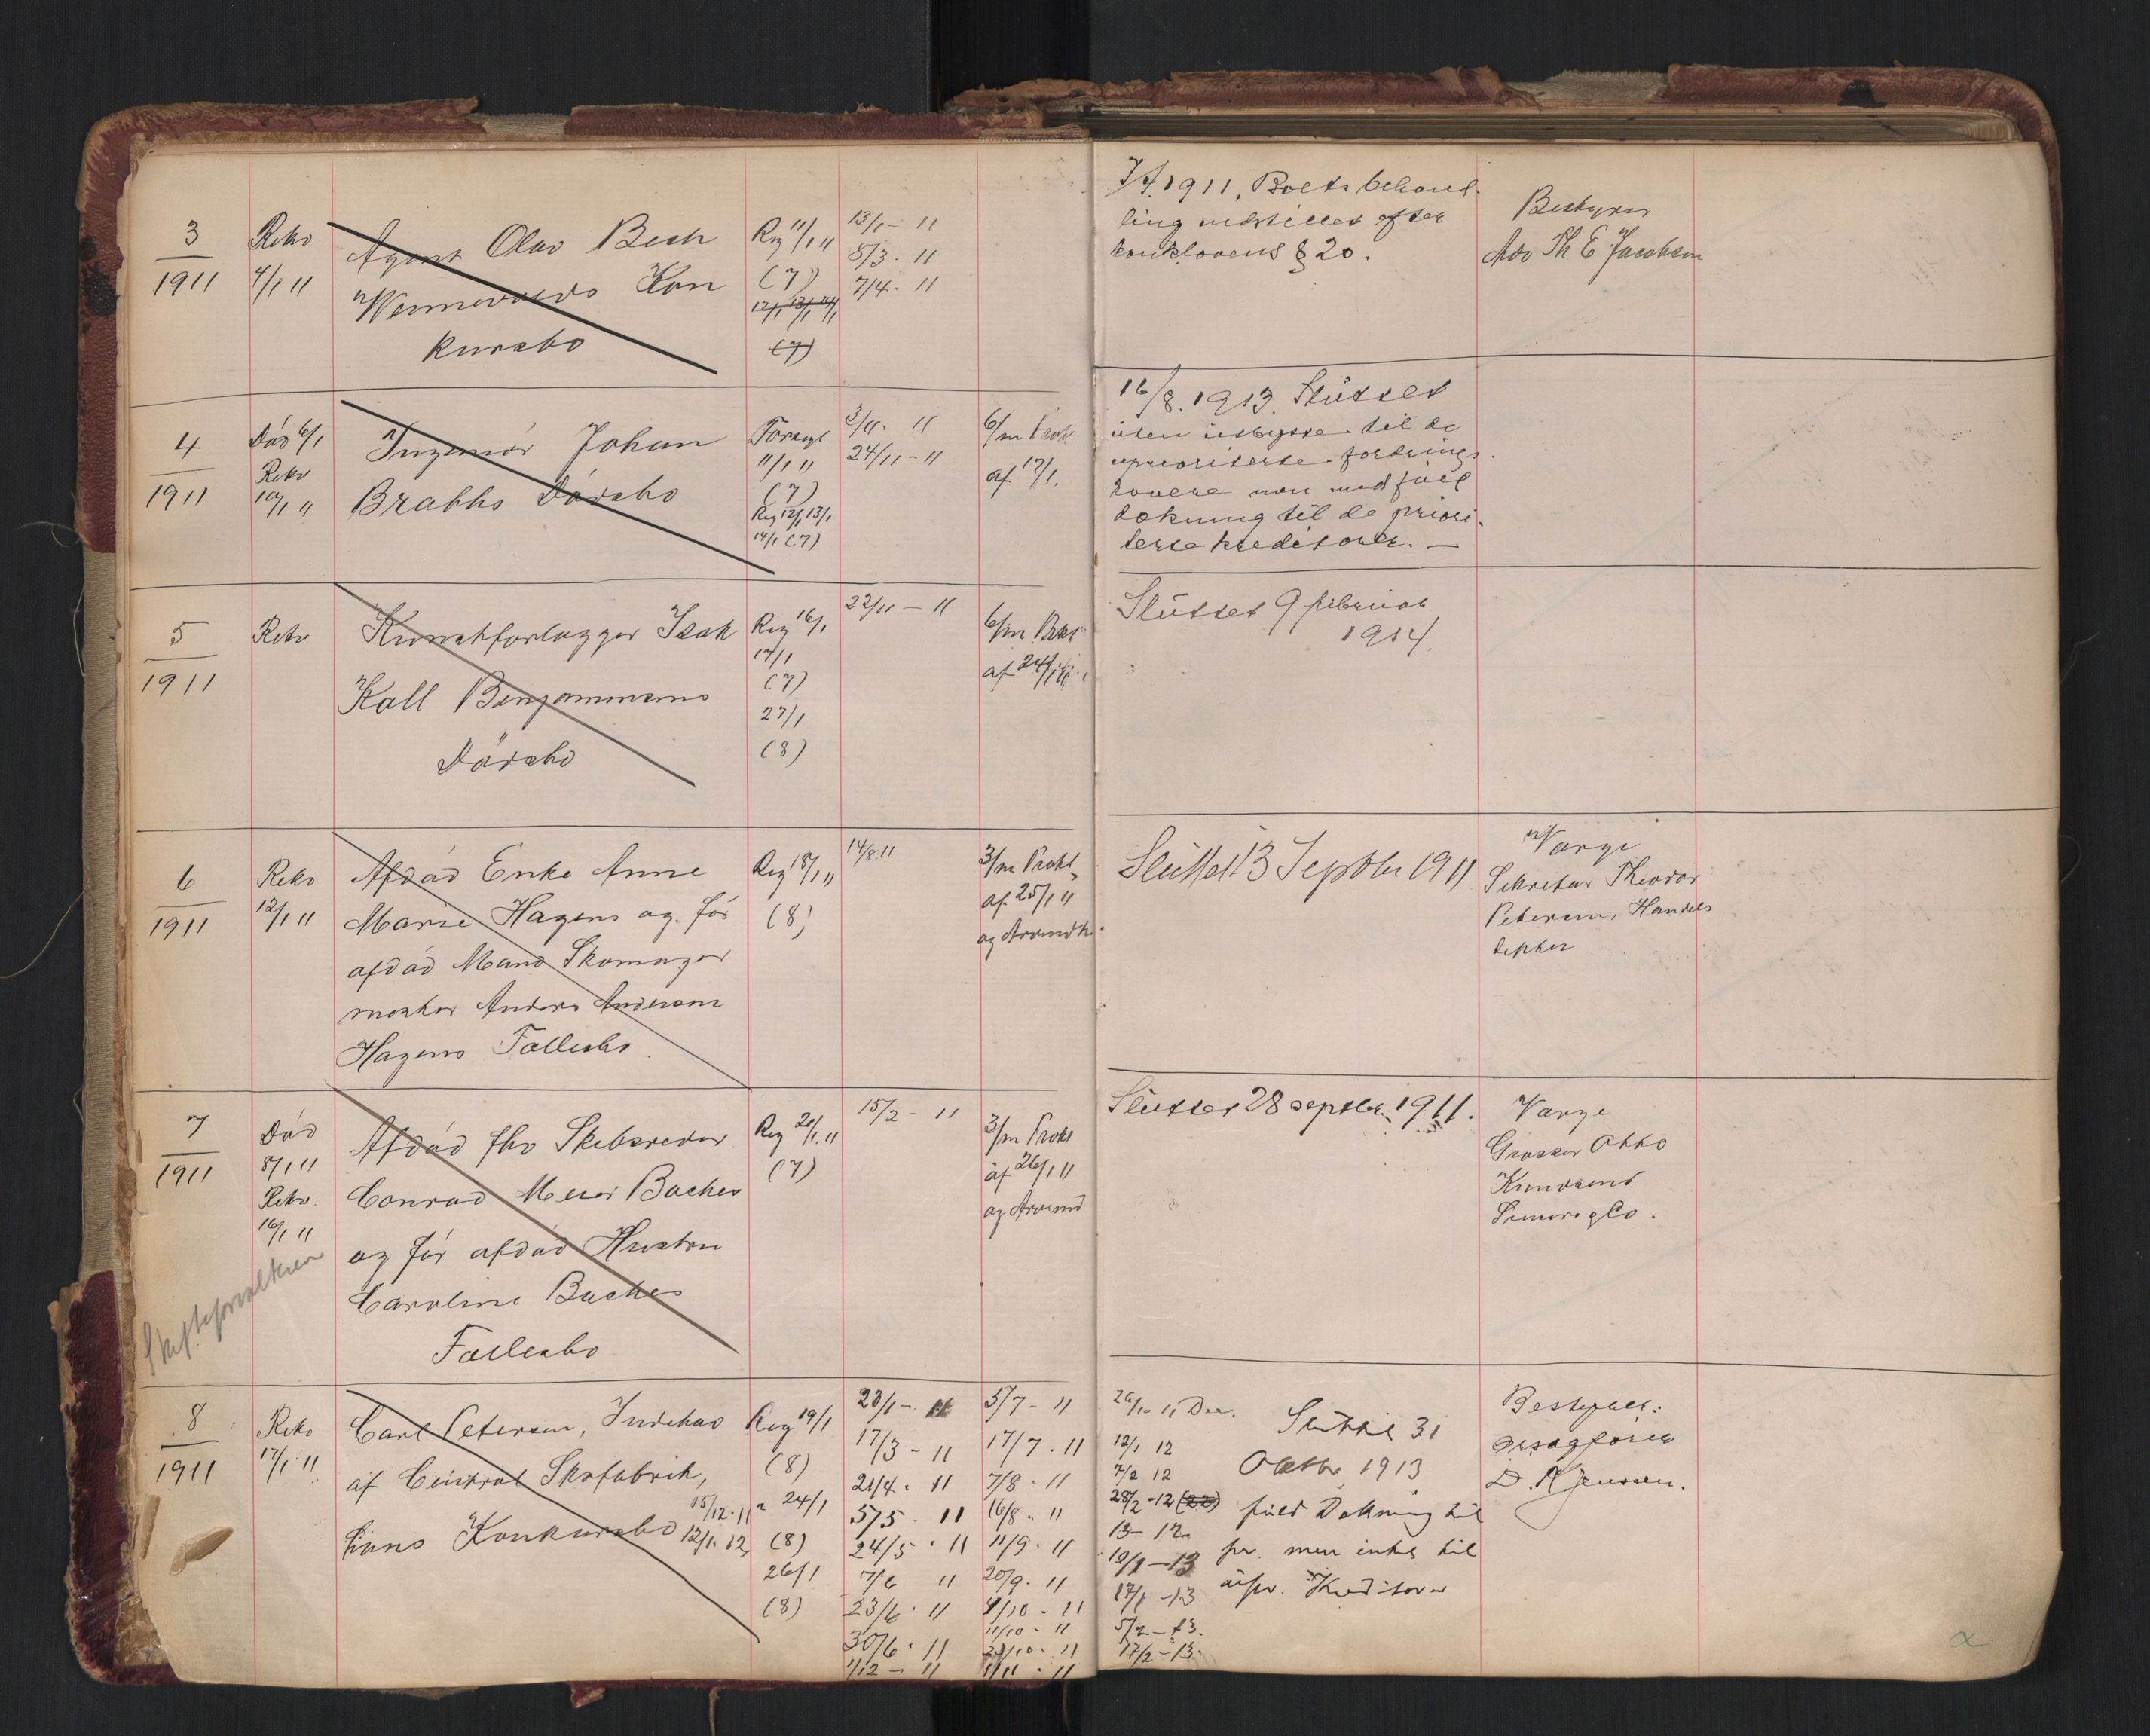 3
1911
Rekv
4/1 11
Agent Olav Bech
Wennevolds Kon
kursbo
Reg 11/1 11
(7)
12/1 13/1 14/1
(7)
13/1 - 11
8/3 - 11
7/4 - 11
7/4 1911, Boets behand-
ling indstillet efter
konklovens § 20.
Bestyrer
Adv Th E Jacobsen
4
1911
Död 6/1
Rekv
10/1 11
Ingeniör Johan
Brabhs Dödsbo
11/1 11
(7)
Reg 12/1 13/1
14/1 (7)
3/11 - 11
24/11 - 11
6/m Prokl
af 17/1.
16/8. 1913. Sluttet
uten utbytte til de
uprioriterte fordrings-
havere men med fuld
dekning til de priori-
terte kreditorer. —
5
1911
Rekv
Kunstforlægger Isak
Kall Benjaminsens
Dödsbo
Reg 16/1
17/1
(7)
27/1
(8)
22/11 - 11
6/m Prokl
af 24/1 11
Sluttet 9 februar
1914.
6
1911
Rekv
12/1 11
Afdöd Enke Anne
Marie Hagens og för
afdöd Mand Skomager
mester Anders Andersen
Hagens Fællesbo
Reg 18/1 11
(8)
14/8 11
3/m Prokl
af 25/1 11
og Arvindk.
Sluttet 13 Septbr 1911
Værge
Sekretær Theodor
Petersen, Handels
dep
7
1911
Död
8/1 11
Rekv.
16/1 11
Skifteforvalteren
Afdöd fhv Skibsreder
Conrad Meier Baches
og för afdöd Hustru
Caroline Baches
Fællesbo
Reg 21/1 11
(7)
15/2 - 11
3/m Prokl
af 26/1 11
og Arvind
Sluttet 28 septbr. 1911.
Værge
Grosser Otto
Knudsens
& Co.
8
1911
Rekv
17/1 11
Carl Petersen, Indehav
af Central Skofabrik,
hans Konkursbo
15/12 - 11
12/1 12
Reg 19/1
(8)
24/1
(8)
26/1
(8)
23/1 - 11
17/3 - 11
21/4 - 11
5/5 - 11
24/5 - 11
7/6 11
23/6 - 11
30/6 - 11
1/12 - 11
5/7 - 11
17/7 - 11
7/8 - 11
16/8 - 11
11/9 - 11
20/9 - 11
4/10 - 11
11/10 - 11
23/10 - 11
1/11 - 11
12/1 12
7/2 12
28/2 - 12 (22)
17/1 - 13
5/2 - 13.
17/2 - 13.
Sluttet 31
Oktbr 1913
fuld Dekning til
pr. men intet til
upr. Kreditorer
Bestyrer:
Orsagförer
D. R Jenssen.